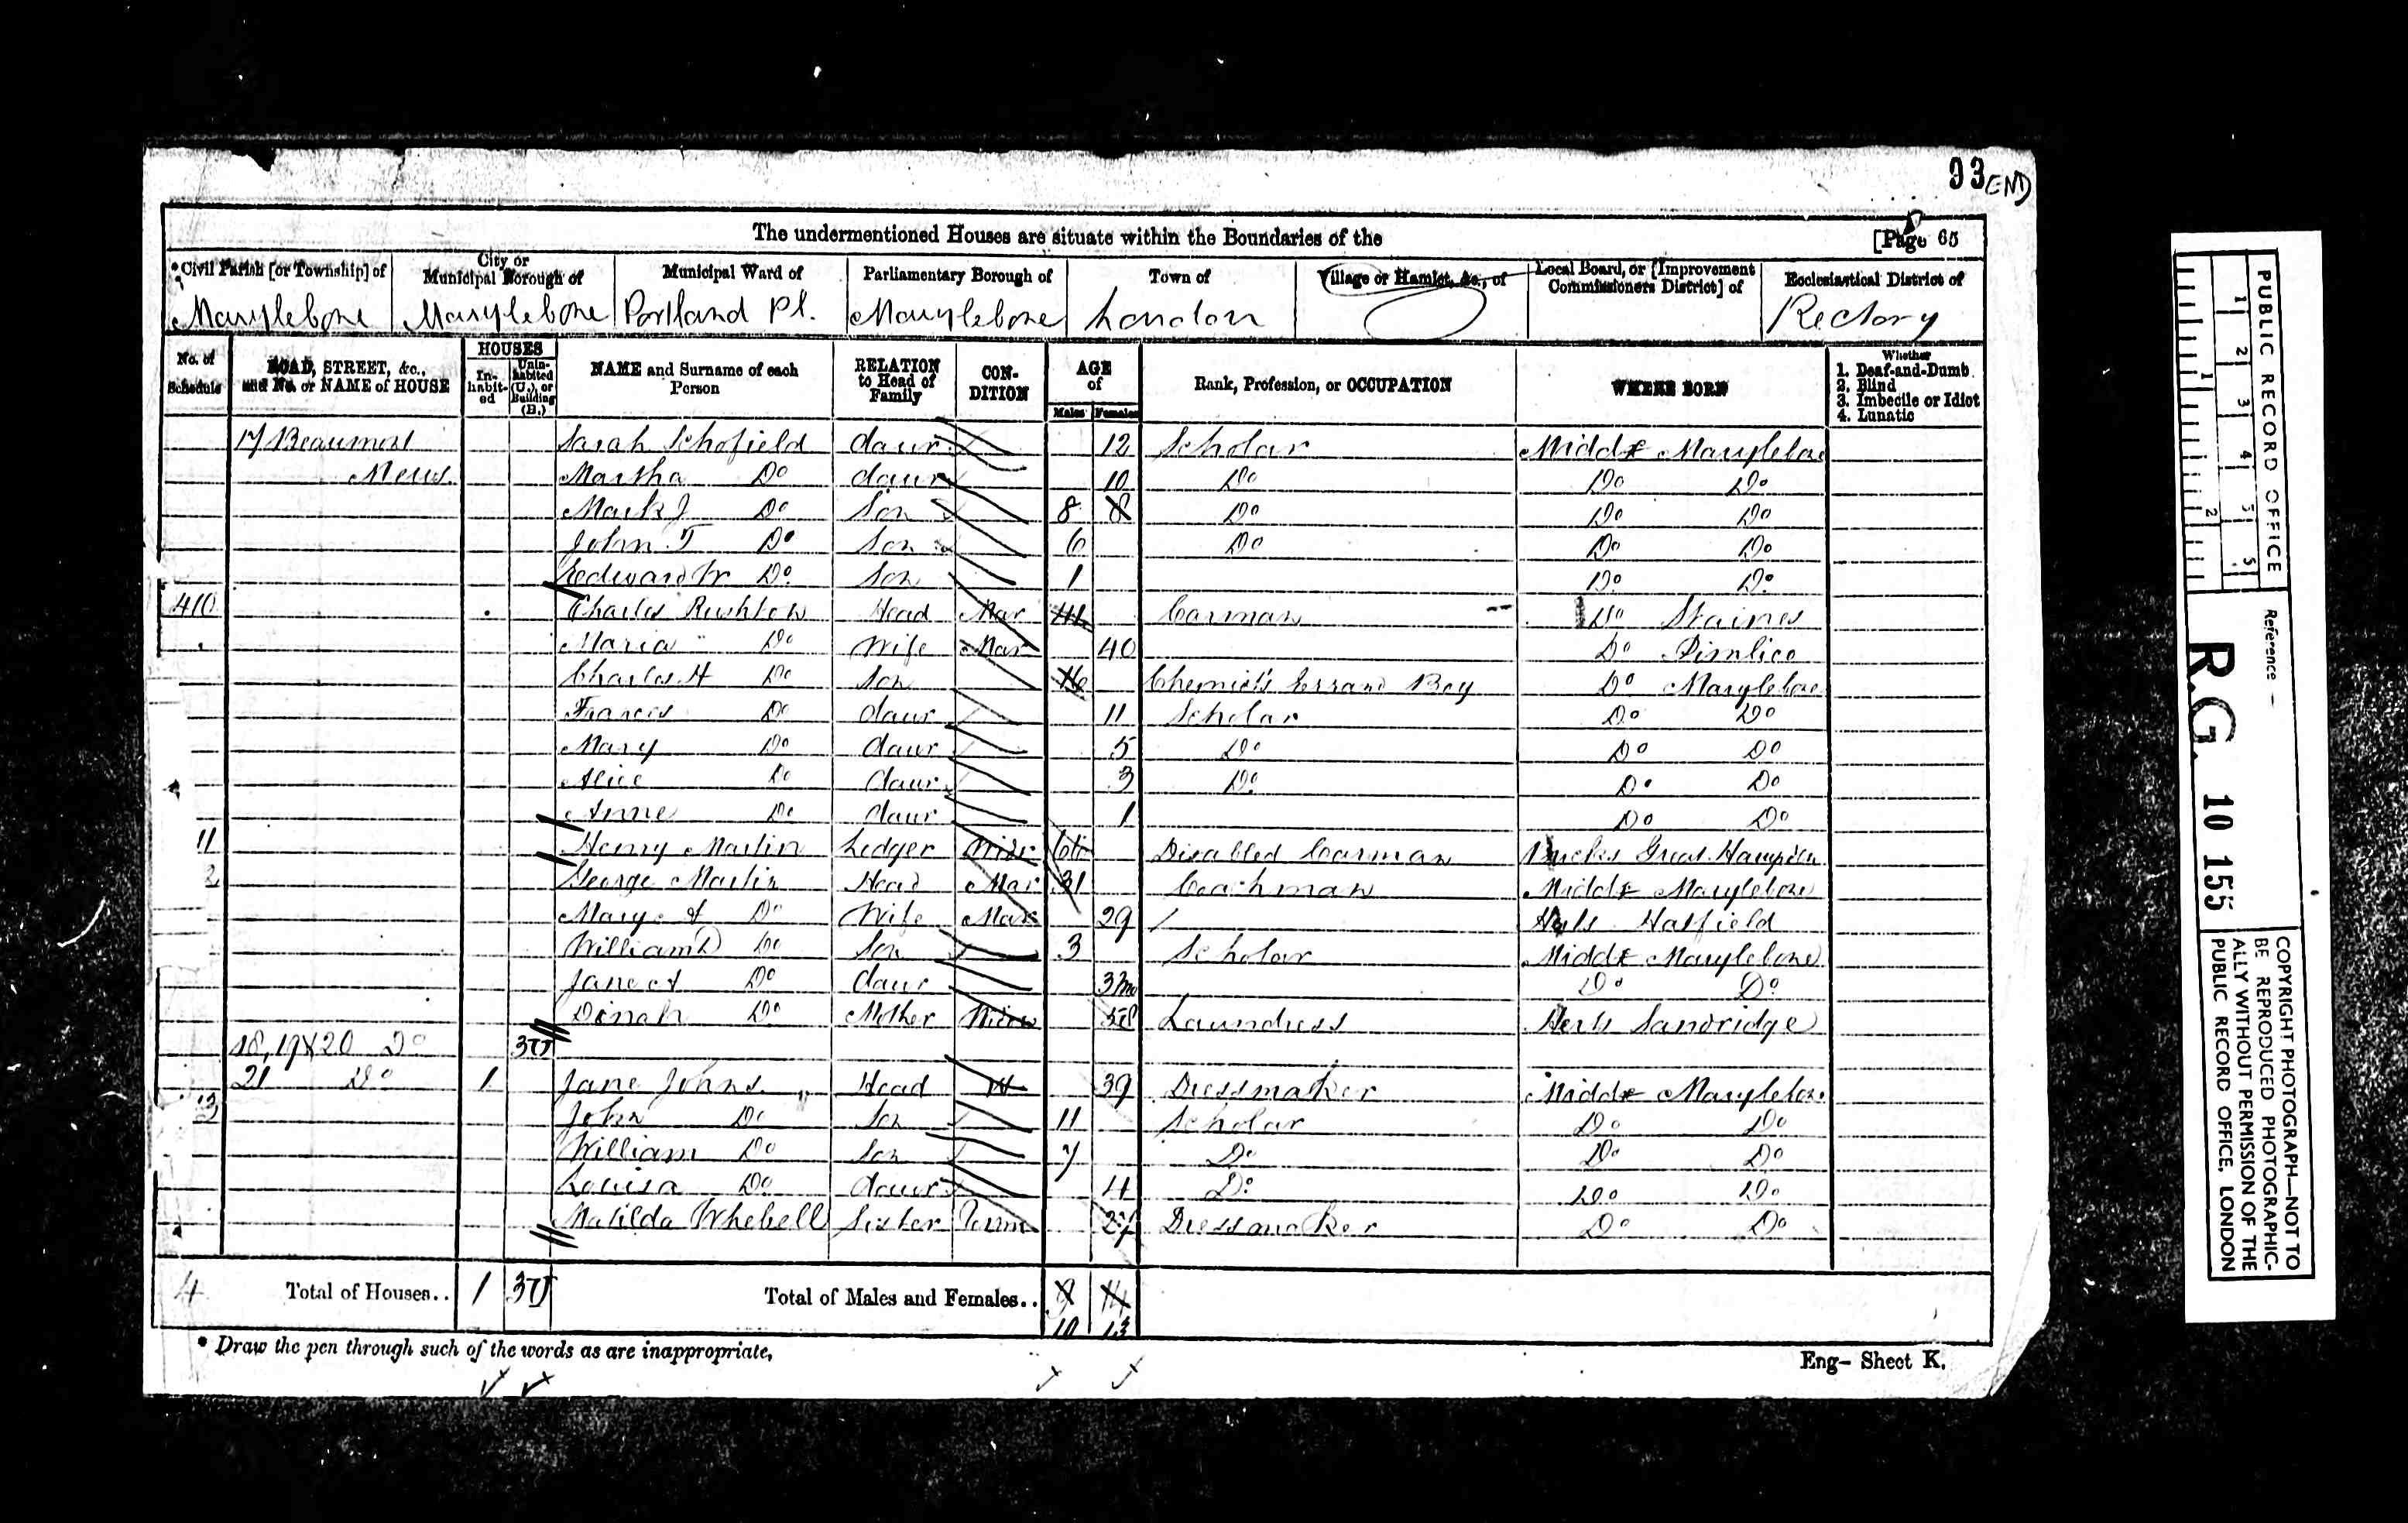 93 END
The undermentioned Houses are situate within the Boundaries of the [Page 65
Civil Parish [or Township] of City or Municipal Borough of Municipal Ward of Parliamentary Borough of Town of Village or Hamlet, &c., of Local Board, or [Improvement Commissioners District] of Ecclesiastical District of
Marylebone Marylebone Portland Pl. Marylebone London Rectory
No. of Schedule ROAD, STREET, &c., and No. or NAME of HOUSE HOUSES Inhabited Uninhabited (U.), or Building (B.) NAME and Surname of each Person RELATION to Head of Family CONDITION AGE of Males Females Rank, Profession, or OCCUPATION WHERE BORN Whether 1. Deaf-and-Dumb 2. Blind 3. Imbecile or Idiot 4. Lunatic
17 Beaumont Sarah Schofield daur 12 Scholar Middx Marylebone
Mews. Martha Do daur 10 Do Do Do
Mark J Do Son 8 8 Do Do Do
John T Do Son 6 Do Do Do
Edward W Do Son 1 Do Do
410 Charles Rushton Head Mar 44 Carman Do Staines
Maria Do Wife Mar 40 Do Pimlico
Charles H Do Son 16 Chemist's Errand Boy Do Marylebone
Frances Do daur 11 Scholar Do Do
Mary Do daur 5 Do Do Do
Alice Do daur 3 Do Do Do
Anne Do daur 1 Do Do
11 Henry Martin Lodger Widr 66 Disabled Carman Bucks Great Hampden
2 George Martin Head Mar 31 Coachman Middx Marylebone
Mary A Do Wife Mar 29 Herts Hatfield
William D Do Son 3 Scholar Middx Marylebone
Jane A Do daur 3mo Do Do
Dinah Do Mother Widow 58 Laundress Herts Sandridge
18, 19 & 20 Do 3U
21 Do 1 Jane Johns Head W 39 Dressmaker Middx Marylebone
13 John Do Son 11 Scholar Do Do
William Do Son 7 Do Do Do
Louisa Do daur 4 Do Do Do
Matilda Whebell Sister Unm 27 Dressmaker Do Do
4 Total of Houses.. 1 3U Total of Males and Females.. 9 14
10 13
* Draw the pen through such of the words as are inappropriate,
Eng- Sheet K.
PUBLIC RECORD OFFICE
1 2 3 4 5 6
1 2
Reference –
R.G. 10 155
COPYRIGHT PHOTOGRAPH—NOT TO
BE REPRODUCED PHOTOGRAPHIC-
ALLY WITHOUT PERMISSION OF THE
PUBLIC RECORD OFFICE, LONDON